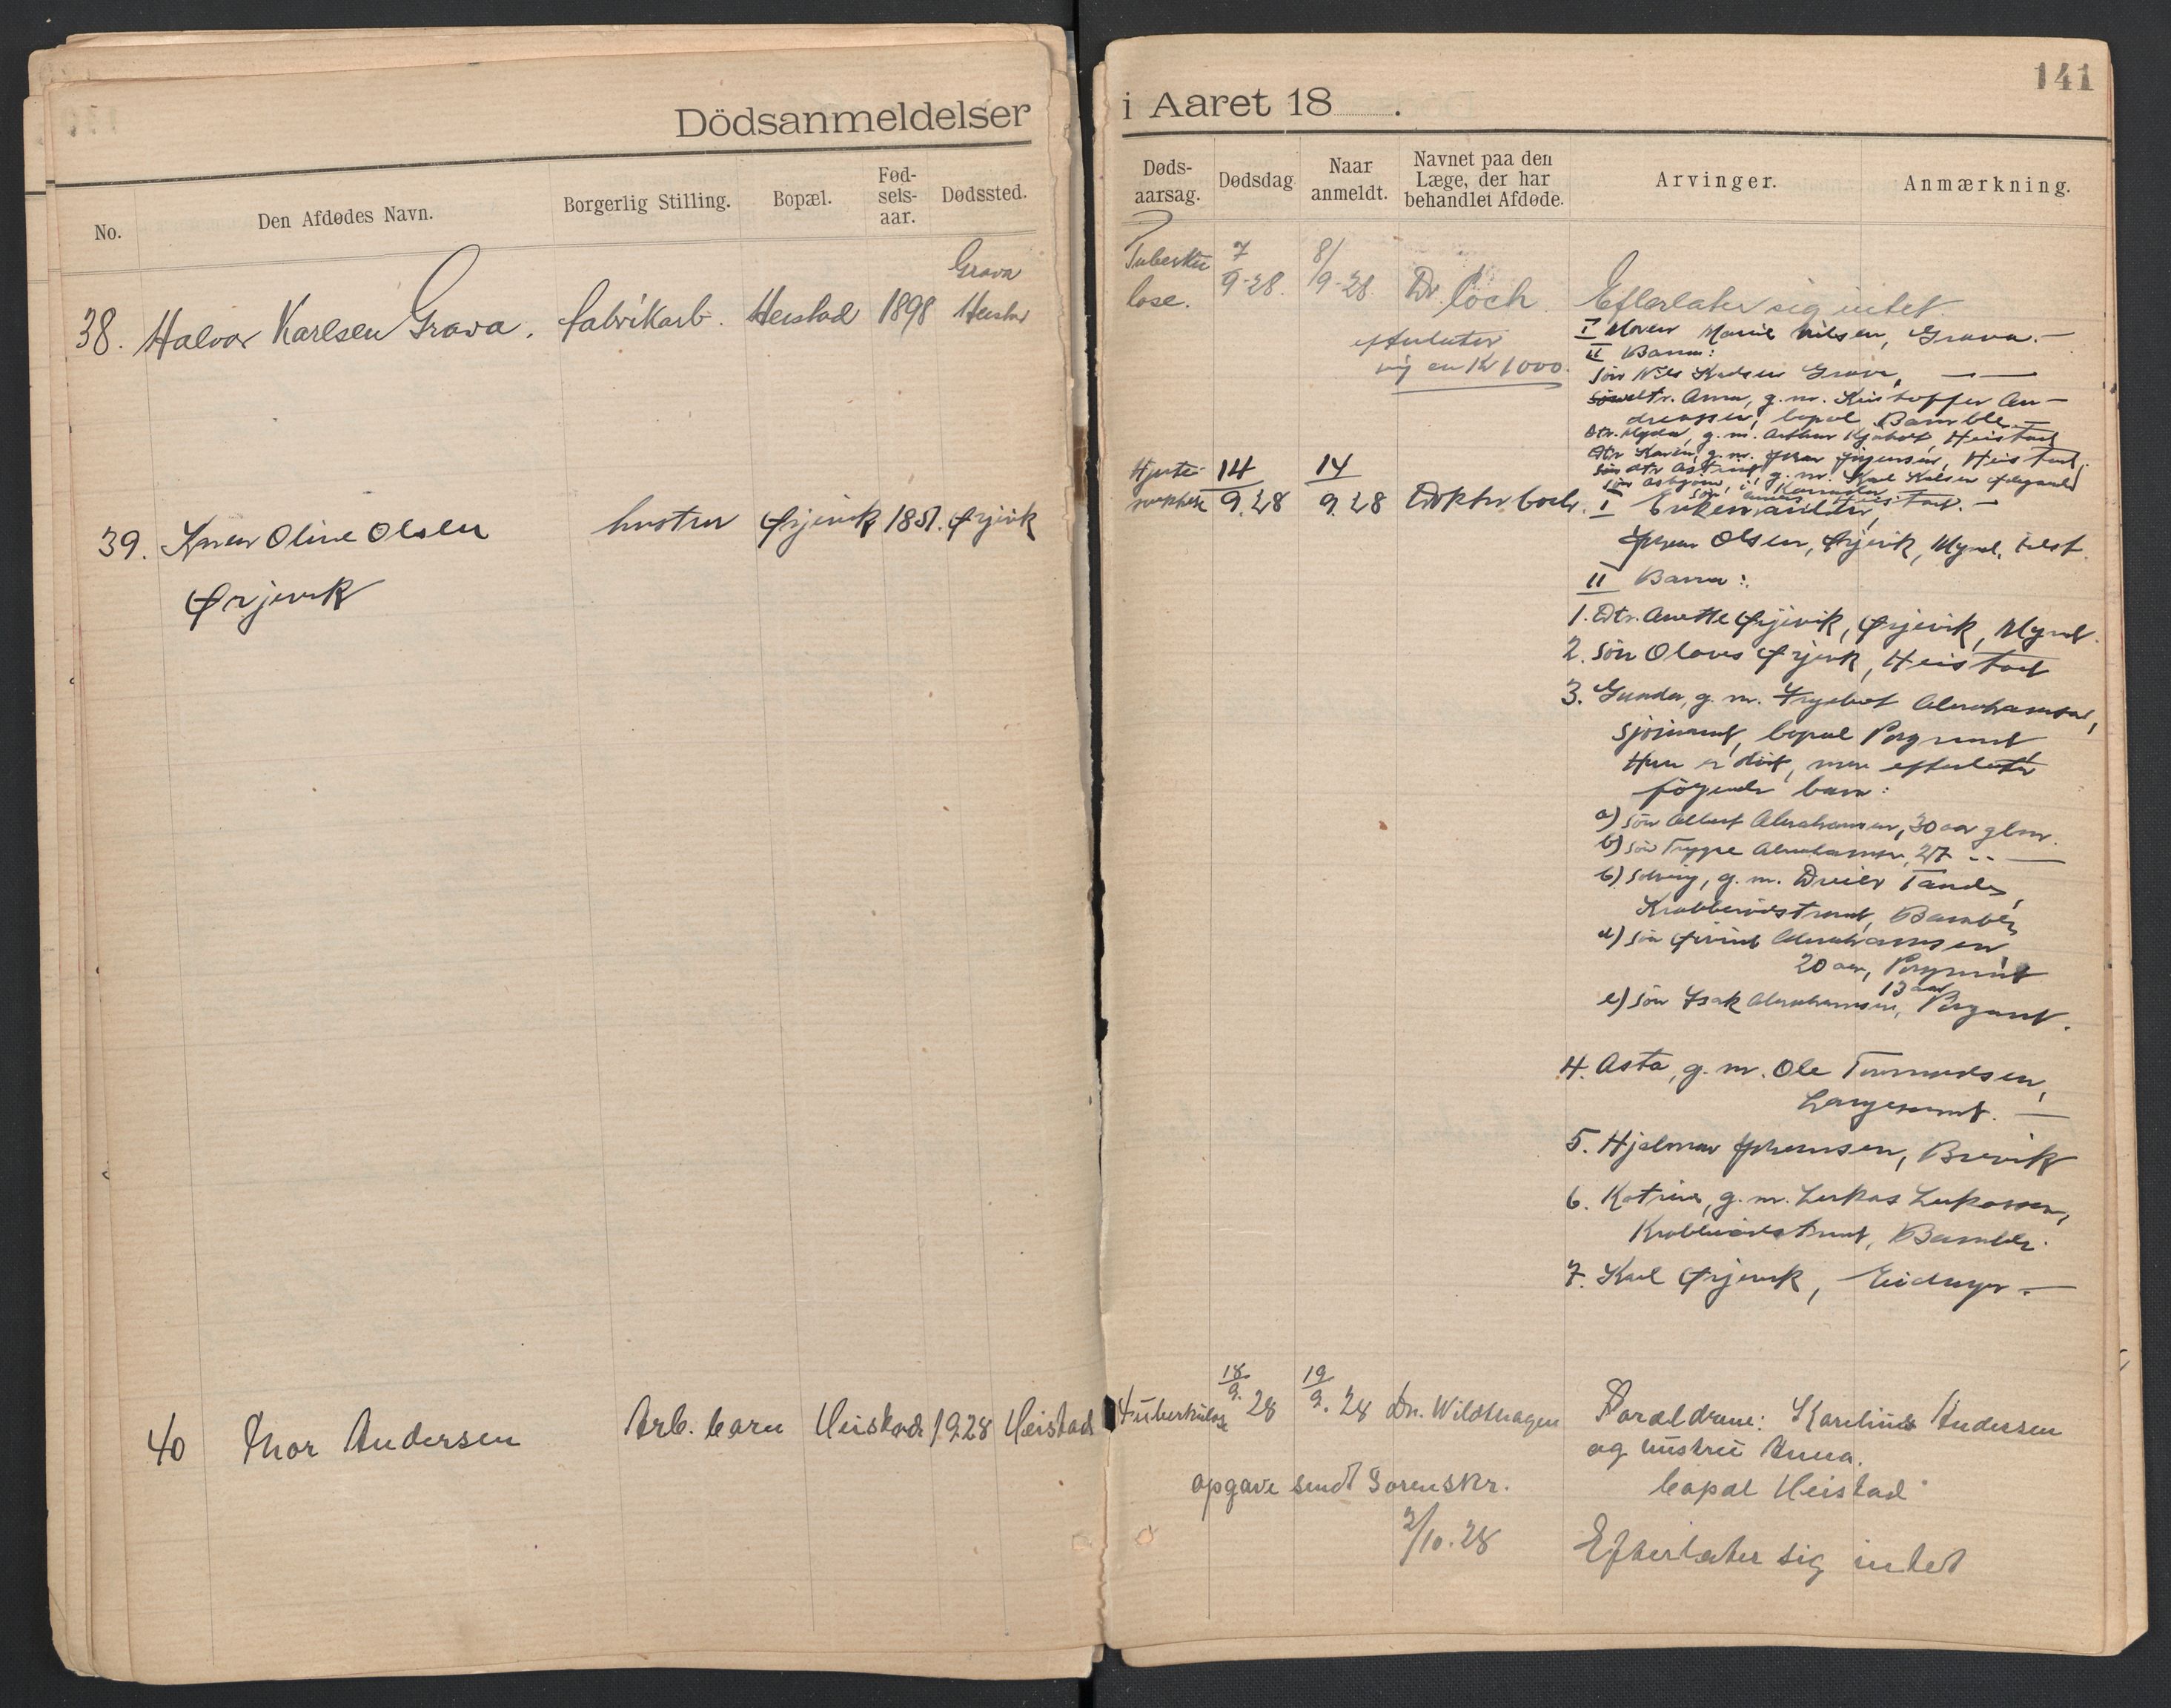 Dödsanmeldelser
No.
Den Afdødes Navn.
Borgerlig Stilling.
Bopæl.
Fød-
sels-
aar.
Dødssted.
38. Halvor Karlsen Grava. fabrikarb. Heistad 1898 Grava
Heistad
39. Karen Oline Olsen hustru Ørjevik 1851. Ørjevik
Ørjevik
40 Thor Andersen Arb. barn Heistad 1928 Heistad
i Aaret 18 .
141
Døds-
aarsag.
Dødsdag
Naar
anmeldt.
Navnet paa den
Læge, der har
behandlet Afdøde.
Arvinger.
Anmærkning.
Tuberku
lose.
7
9-28.
8/
9-28.
Dr. Coch
Efterlater sig intet.
efterlater
sig en Kr 1000.
I Moren Marie Nilsen, Grava. —
II Barn:
Søn Nils Karlsen Grava, — —
Dtr. Anna, g. m. Kristoffer An-
dreassen, bopæl Bamble. —
Dtr. g. m. Arthur Heistad
Dtr Karen, g. m. Johan Jørgensen, Heistad.
Dtr Astrid, g. m. Karl
Hjerte-
14
9.28
14
9.28
Doktor Coch.
I Enkemanden,
Johan Olsen, Ørjevik, Mynd.
II Barn:
1. Dtr. Anette Ørjevik, Ørjevik, Mynd.
2. Søn Olaves Ørjevik, Heistad
3. Gunda, g. m. Abrahamsen,
sjømand, bopæl Porsgrund
Hun er død, men efterlater
følgende barn:
a) Søn Albert Abrahamsen, 30 aar glm.
b) Søn Trygve Abrahamsen, 27 -- —
c) Solveig, g. m. Tande,
Krabberødstrand, Bamble
d) Søn Øivind Abrahamsen
20 aar, Porsgrund
13 aar
e) Søn Isak Abrahamsen, Porsgrund.
4. Asta, g. m. Ole Tormodsen,
Langesund. —
5. Hjalmar Johansen, Brevik
6. Katrine, g. m. Lukas Lukassen,
Krabberødstrand, Bamble.
7. Karl Ørjevik, Eidanger. —
Tuberkulose
18
9. 28
19
9. 28
Dr. Wildhagen
Forældrene: Karelius Andersen
og hustru Anna.
bopæl Heistad
opgave sendt Sorenskr.
2/10.28
Efterlater sig intet